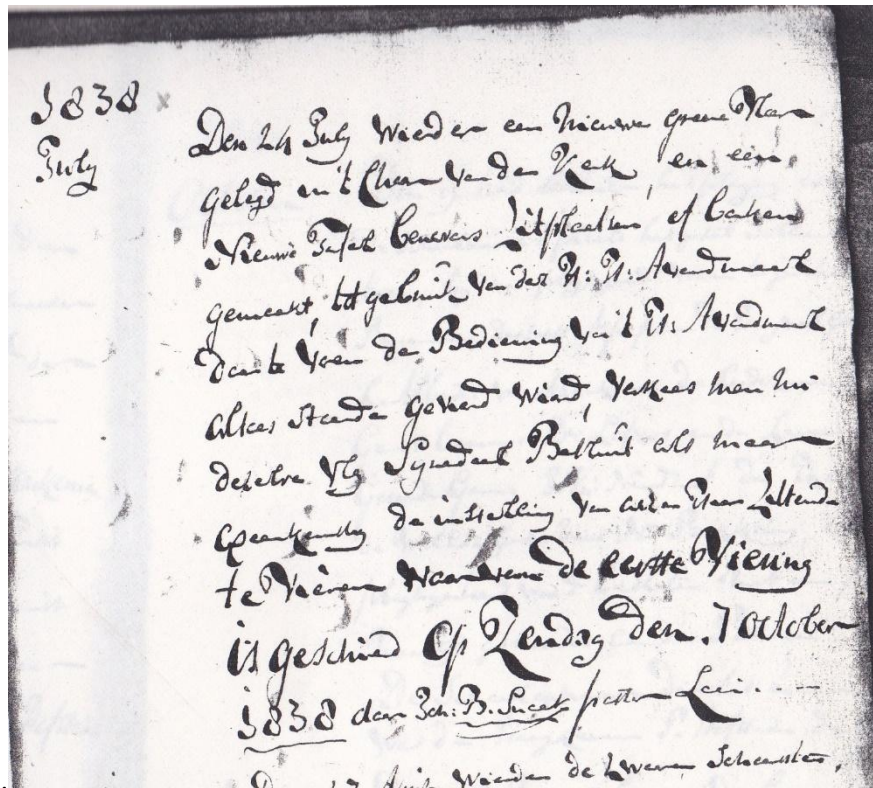 1838
July
Den 24 July wierd er een Nieuwe groene Vloer
gelegd in 't Choor van de Kerk en een
Nieuwe Tafel benevens Zitplaatsen of banken
gemaekt, tot gebruik van het H: H: Avondmaal
daar te Voren de Bediening van 't H: Avondmaal
altoos staande gevierd wierd, verkoos men nu
dezelve Vlg Synodaal Besluit als meer
de instelling van onzen Heer Zittende
te Vieren waarvan de eerste Viering
is geschied Op Zondag den 7 October
1838 door
de zware